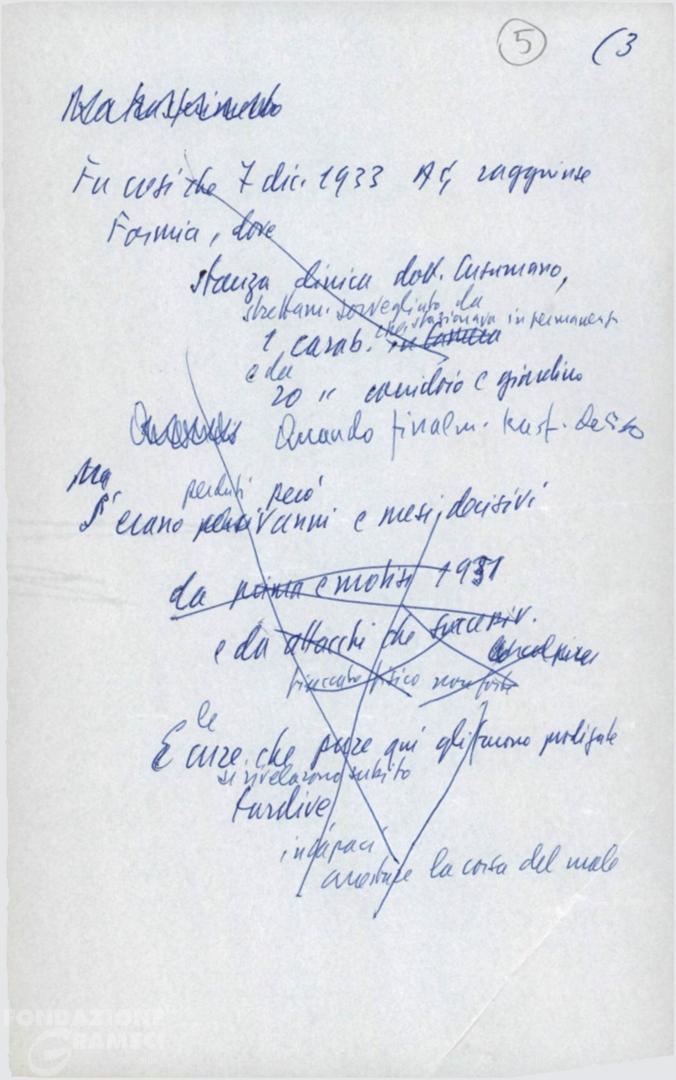 5 (3
Fu così che 7 dic. 1933 AG, raggiunse
Formia, dove
stanza clinica dott. Cusumano,
strettam. sorvegliato da
1 carab. che stazionava in permanenza
e da
20 " corridoio e giardino
Quando finalm. trasf. deciso
Ma
perduti però
S'erano anni e mesi decisivi
da prima e molisi 1931
e da attacchi che
fisico non forte
le
E cure che pure qui gli furono prodigate
si rivelarono subito
tardive
incapaci
arrestare la corsa del male
FONDAZIONE
GRAMSCI